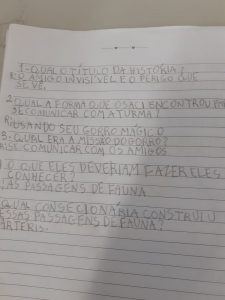 1-QUAL O TÍTULO DA HISTÓRIA?
R:O AMIGO INVISÍVEL E O PERIGO QUE
SE VÊ.
2-QUAL A FORMA QUE O SACI ENCONTROU
SE COMUNICAR COM A TURMA?
R:USANDO SEU GORRO MÁGICO
3-QUAL ERA A MISSÃO DO GORRO?
R:SE COMUNICAR COM OS AMIGOS
O QUE ELES DEVERIAM FAZER ELES
CONHECER?
AS PASSAGENS DE FAUNA
QUAL CONSECIONÁRIA CONSTRUIU
ESSAS PASSAGENS DE FAUNA?
ARTERIS.